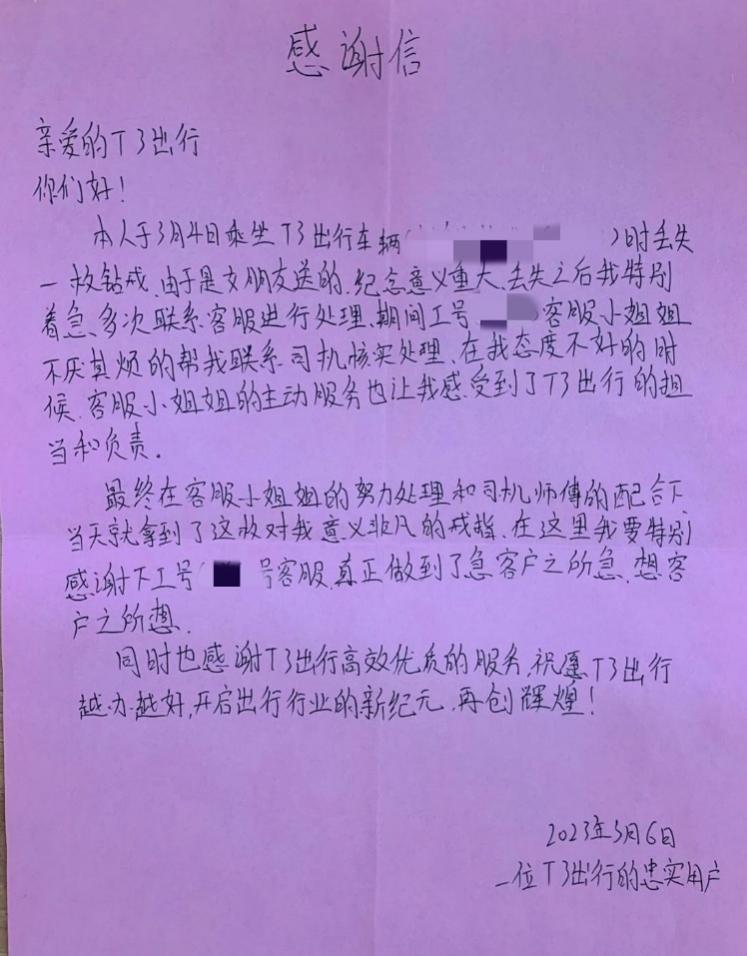 感谢信
亲爱的T3出行
你们好!
本人于3月4日乘坐T3出行车辆( )时丢失
一枚钻戒,由于是女朋友送的,纪念意义重大,丢失之后我特别
着急,多次联系客服进行处理,期间工号 客服小姐姐
不厌其烦的帮我联系司机核实处理,在我态度不好的时
候,客服小姐姐的主动服务也让我感受到了T3出行的担
当和负责.
最终在客服小姐姐的努力处理和司机师傅的配合下
当天就拿到了这枚对我意义非凡的戒指,在这里我要特别
感谢下工号( 号客服,真正做到了急客户之所急,想客
户之所想.
同时也感谢T3出行高效优质的服务,祝愿T3出行
越办越好,开启出行行业的新纪元,再创辉煌!
2023年3月6日
一位T3出行的忠实用户